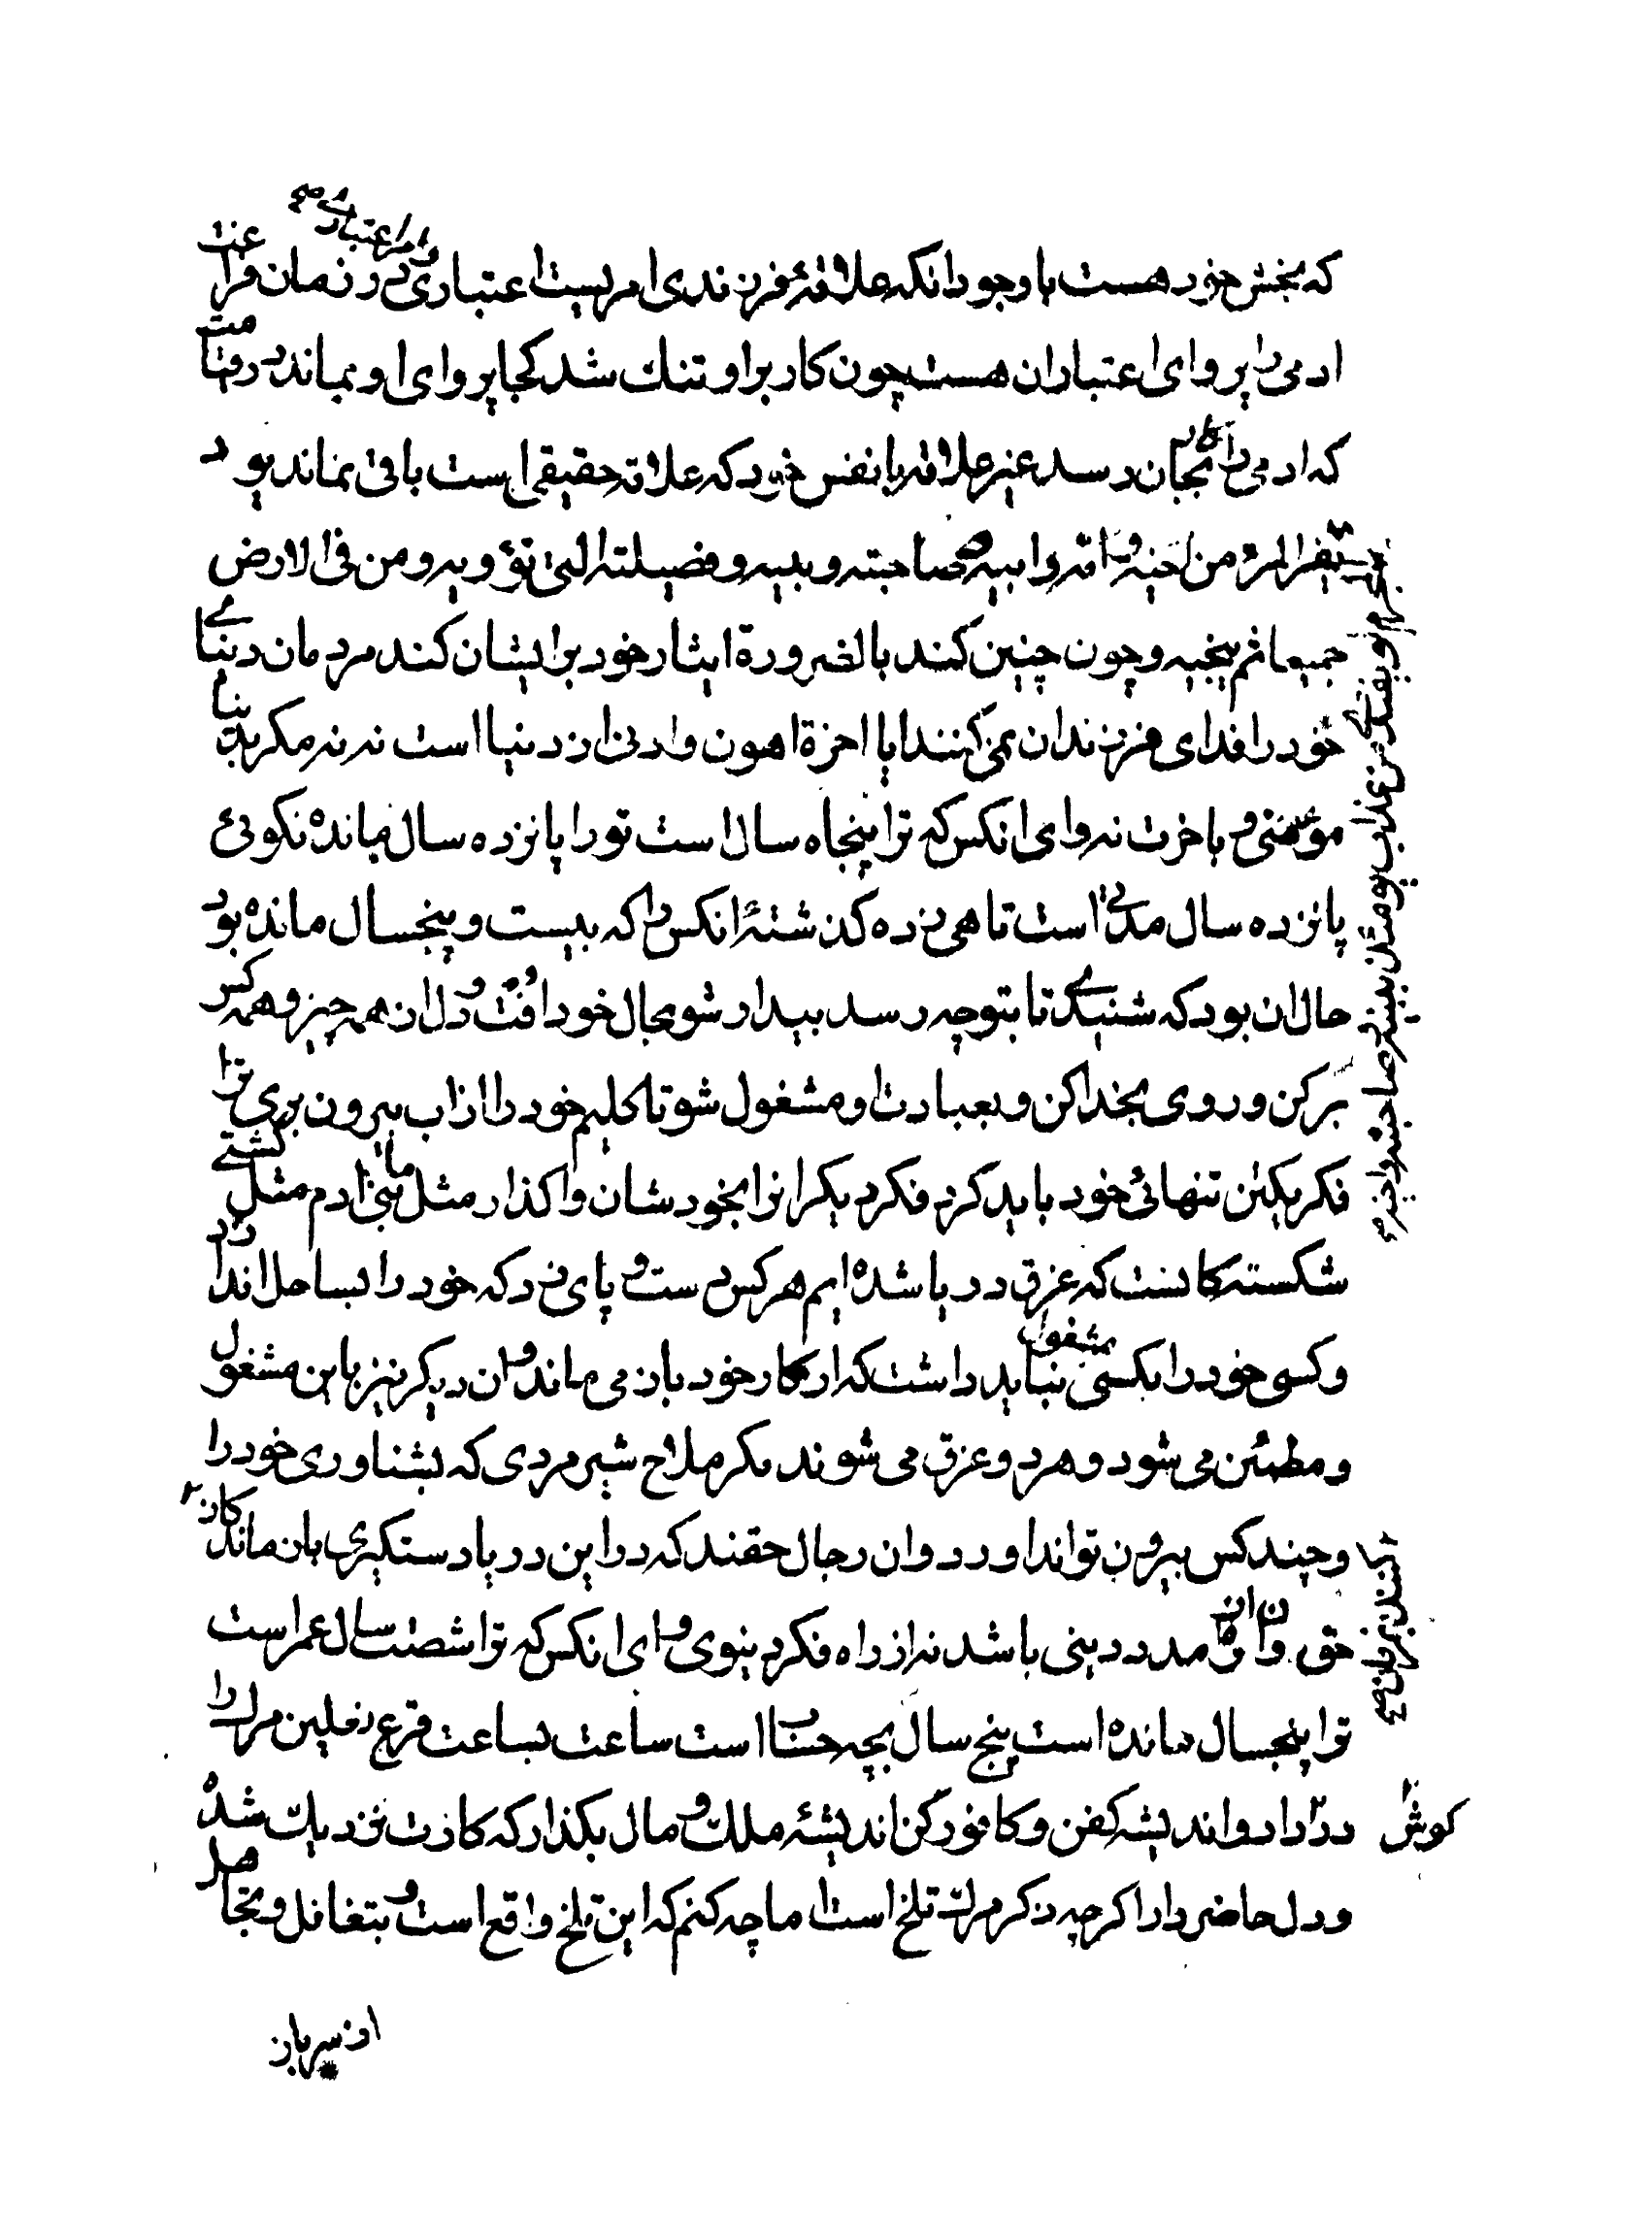 که بخش خود هست با وجود انکه علاقهٔ فرزندی امریست اعتباری در زمان فراغت
و امر اعتباری صح
ادمی را پروای اعتباران هست چون کار بر او تنك شد کجا پروای او بماند در وقتا
که ادمی را کار بجان رسد غیر علاقه با نفس خود که علاقه حقیقی است باقی نماند یود
یفر المرء من اخیه و امه و ابیه و صاحبته و بنیه و فصیلته التی تؤویه و من فی الارض
جمیعا ثم ینجیه و چون چنین کنند بالضرورة ایثار خود بر ایشان کند مردمان دنیای
خود را فدای فرزندان نمی کنند ایا اخرة اهون و ادنی از دنیا است نه نه مکر بدنیا
مؤمنی و باخرت نه وای انکس که ترا پنجاه سال است تو را پانزده سال مانده نکوئی
پانزده سال مدتی است تا هی زده کذشتهٔ انکس را که بیست و پنجسال مانده بود
حال ان بود که شنیدی تا بتو چه رسد بیدار شو بحال خود افت و دل از همه چیز و همه کس
بر کن و روی بخدا کن و بعبادت او مشغول شو تا کلیم خود را از اب بیرون بری ترا
فکر بکن تنهائی خود باید کرد فکر دیکرانرا بخودشان واکذار مثل ما بنی ادم مثل کشتی
شکستکانست که غرق دریا شده ایم هر کس دست و پای زد که خود را بساحل اندازد
و کسی خود را بکسی مشغول نباید داشت که از کار خود باز می ماند و ان دیکر نیز باین مشغول
و مطمئن می شود و هر دو غرق می شوند مکر ملاح شیر مردی که بشناوری خود را
و چند کس بیرون تواند اورد و ان رجال حقند که در این دریا دستکیری بازماندکان
حق و ان مدد دینی باشد نه از راه فکر دینوی و ای انکس که ترا شصت سال عمر است
ترا پنجسال مانده است پنج سال بچه حساب است ساعت بساعت قرع نعلین مرك را
کوش دردار و اندیشه کفن و کافور کن اندیشهٔ ملك و مال بکذار که کارت نزدیك شده
و دل حاضر دار اکر چه ذکر مرك تلخ است اما چه کنم که این تلخ واقع است و بتغافل و تجاهل
از سر باز